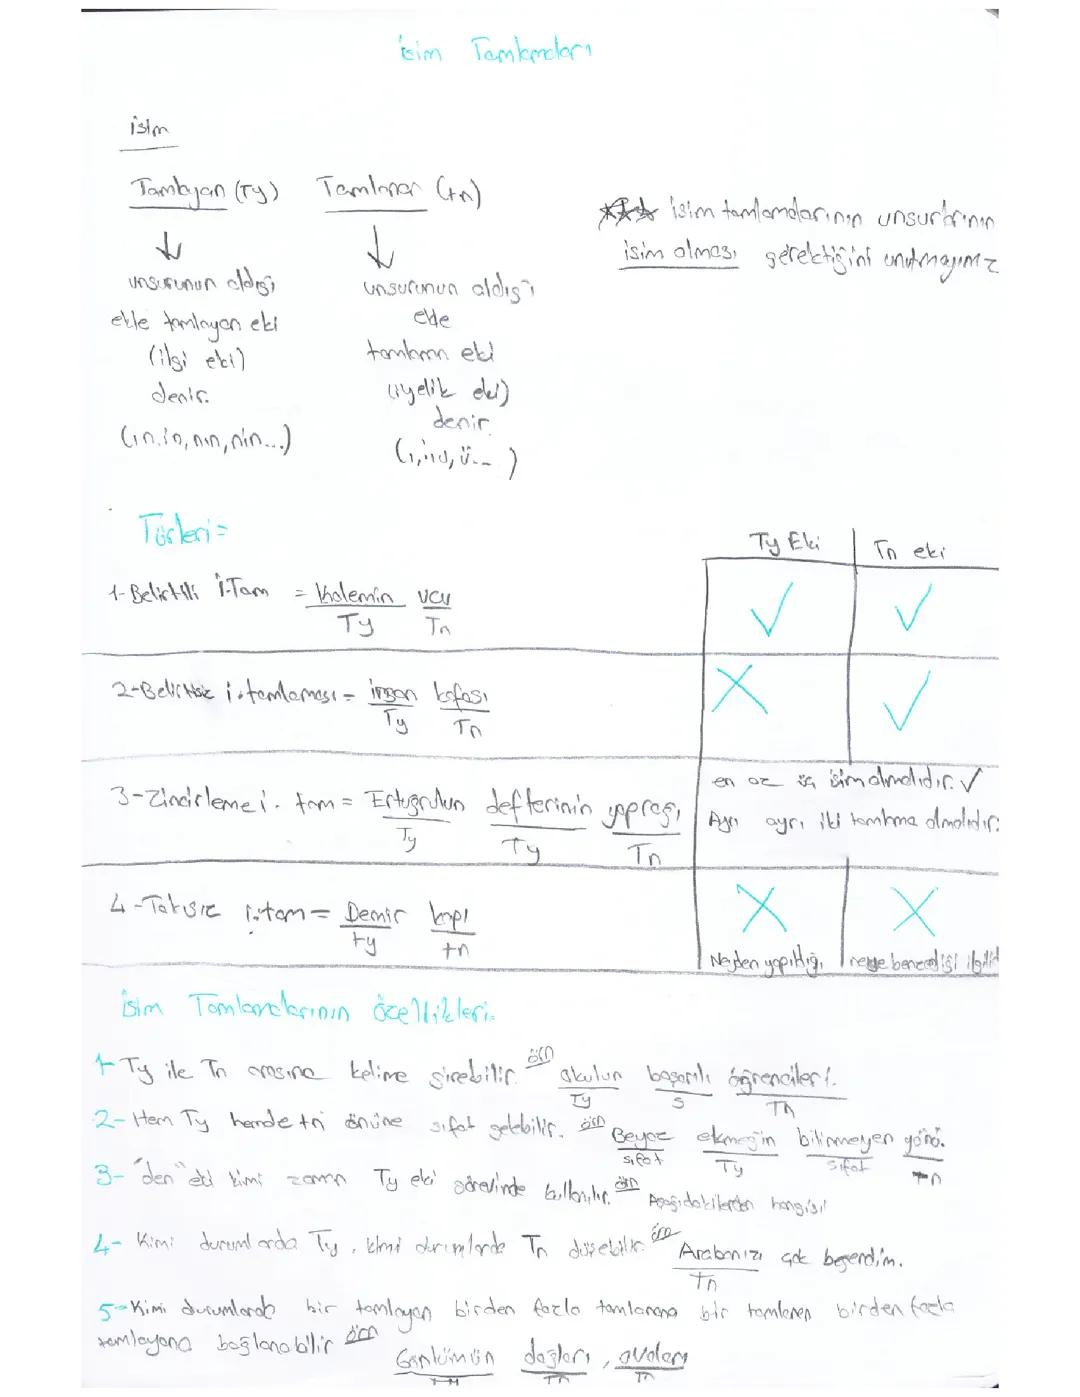 İsim Tamlamaları
isim
Tamlayan (Ty) Tamlanan (tn)
↓ ↓
unsurunun aldığı unsurunun aldığı
ekle tamlayan eki ekle
(ilgi eki) tamlanan eki
denir. (iyelik eki)
(ın, in, nın, nin...) denir.
(ı, i, u, ü... )
*** isim tamlamalarının unsurlarının
isim olması gerektiğini unutmayınız
Türleri =
Ty Eki Tn eki
1- Belirtili İ.Tam = Kalemin ucu ✓ ✓
Ty Tn
2- Belirtisiz i.tamlaması = insan kafası X ✓
Ty Tn
3- Zincirleme i. tam = Ertuğrulun defterinin yaprağı en az üç isim olmalıdır. ✓
Ty Ty Tn Ayrı ayrı iki tamlama olmalıdır.
4- Takısız i.tam = Demir kapı X X
ty tn Neyden yapıldığı, neye benzediği ilgili
İsim Tamlamalarının özellikleri.
1- Ty ile Tn arasına kelime girebilir. örn okulun başarılı öğrencileri.
Ty S Tn
2- Hem Ty hemde tn önüne sıfat gelebilir. örn Beyaz ekmeğin bilinmeyen yönü.
sıfat Ty sıfat tn
3- "den" eki kimi zaman Ty eki görevinde kullanılır. örn Aşağıdakilerden hangisi
4- Kimi durumlarda Ty, kimi durumlarda Tn düşebilir. örn Arabanızı çok beğendim.
Tn
5- Kimi durumlarda bir tamlayan birden fazla tamlanana bir tamlanan birden fazla
tamlayana bağlanabilir örn
dağları, ovaları
Tn Tn